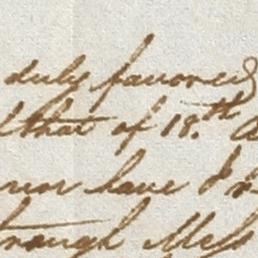 duly favored
that of 18.th
nor have I
through Mess